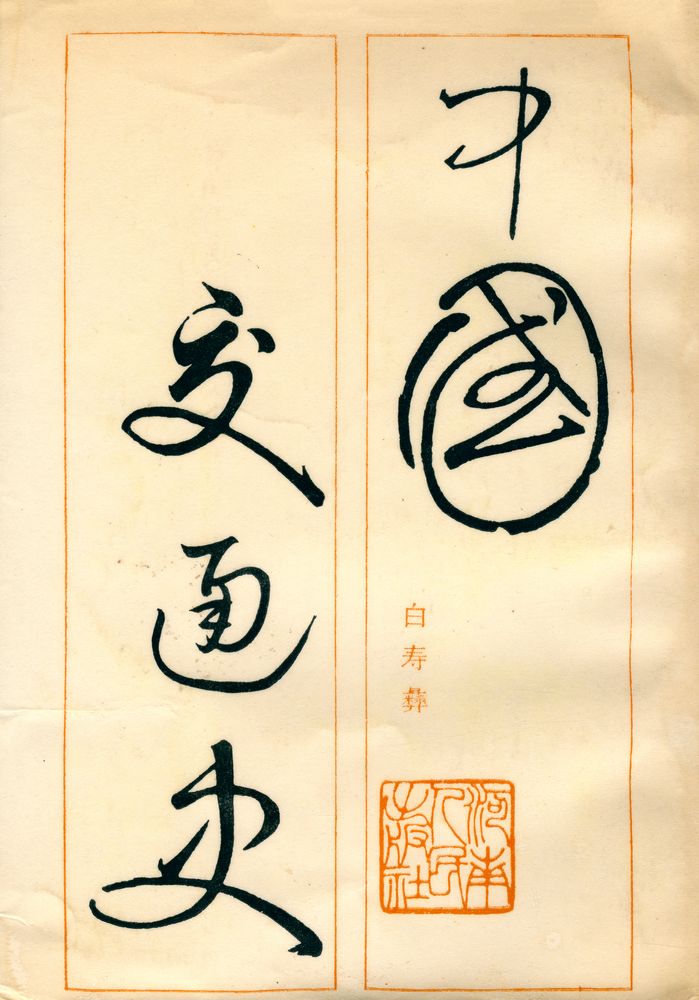 中国
交通史
白寿彝
河南
人民
出版社